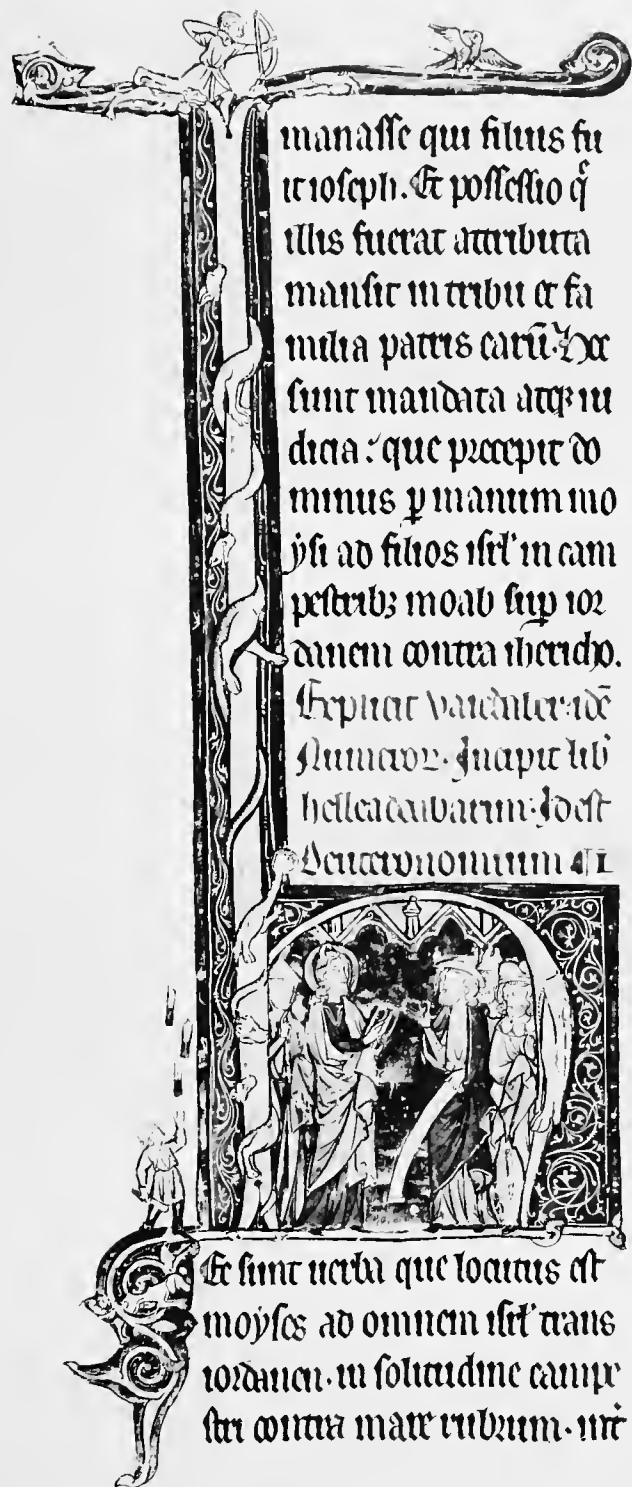 manasse qui filius fu
it ioseph. Et possessio q̄
illis fuerat attributa
mansit in tribu et fa
milia patris earū. Hec
sunt mandata atqꝫ iu
dicia: que precepit do
minus ꝑ manum mo
ysi ad filios isrl' in cam
pestribꝫ moab suꝑ ior
danem contra ihericho.
Explicit vaiedaber idē
Numeror. Incipit lib'
helleaddabarim. Idest
Deuteronomium
EC sunt uerba que locutus est
moyses ad omnem isrl' trans
iordanen. in solitudine campe
stri contra mare rubrum. int'